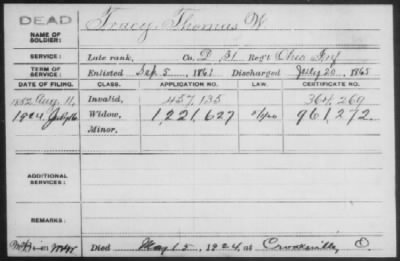 DEAD
Tracy, Thomas W
NAME OF SOLDIER:
SERVICE: Late rank, Co. D 31 Reg't Ohio Inf
TERM OF SERVICE: Enlisted Sep 5, 1861 Discharged July 20, 1865
DATE OF FILING. CLASS. APPLICATION NO. LAW. CERTIFICATE NO.
1882 Aug. 11, Invalid, 457,135 364,269
1924, Widow, 1,221,627 961,272.
Minor,
ADDITIONAL SERVICES:
REMARKS:
Died May 15, 1924, at Crooksville, O.